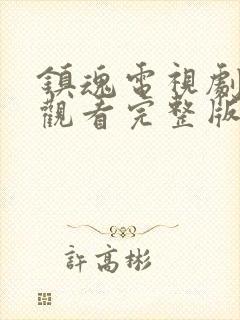 鎮魂電視劇
觀看完整版
許高彬